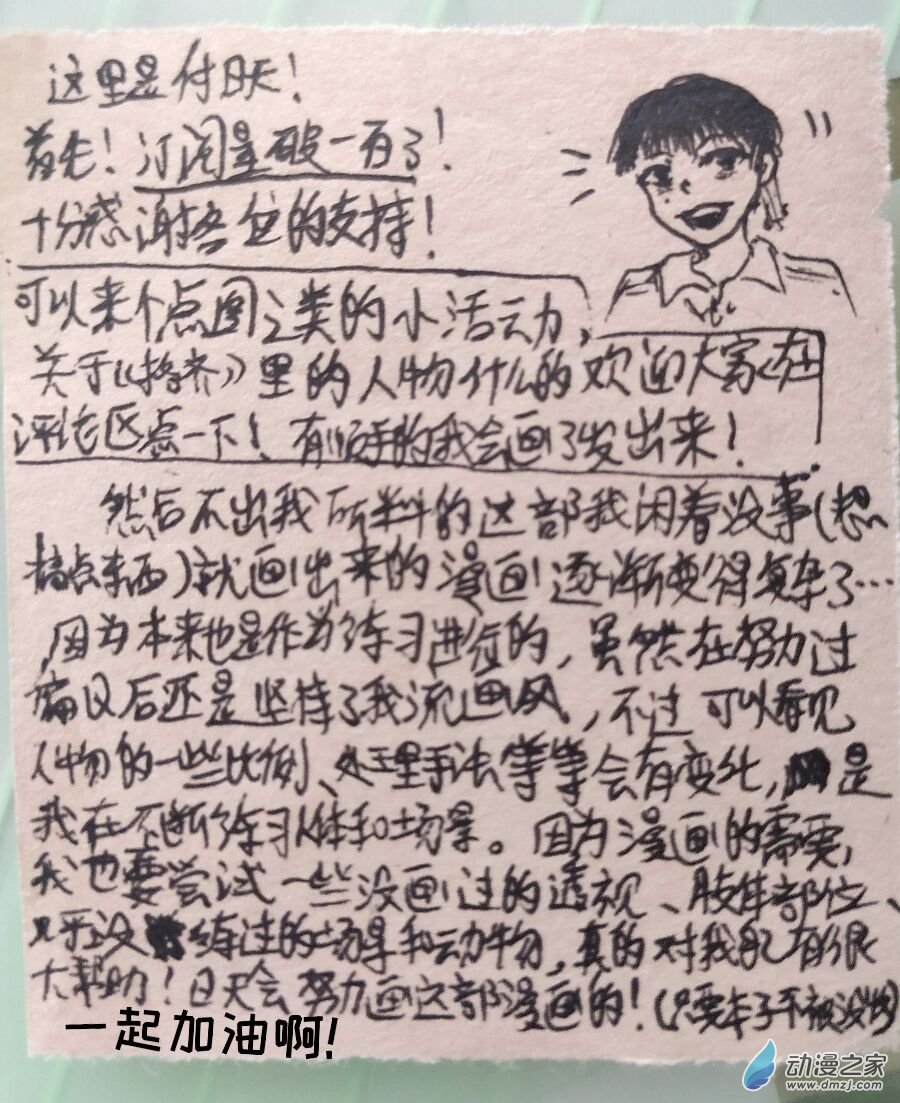 这里是付日天!
首先!订阅量破一百了!
十分感谢各位的支持!
可以来个点图之类的小活动,
关于《格齐》里的人物什么的欢迎大家在
评论区点一下!有顺手的我会画了发出来!
然后不出我所料的这部我闲着没事(想
搞点东西)就画出来的漫画逐渐变得复杂了…
因为本来也是作为练习进行的,虽然在努力过
后还是坚持了我流画风,不过可以看见
人物的一些比例、处理手法等等会有变化,是
我在不断练习人体和场景。因为漫画的需要,
我也要尝试一些没画过的透视、肢体部位、
几乎没练过的场景和动物,真的对我有很
大帮助!日天会努力画这部漫画的!(只要本子不被没收)
一起加油啊!
动漫之家
www.dmzj.com